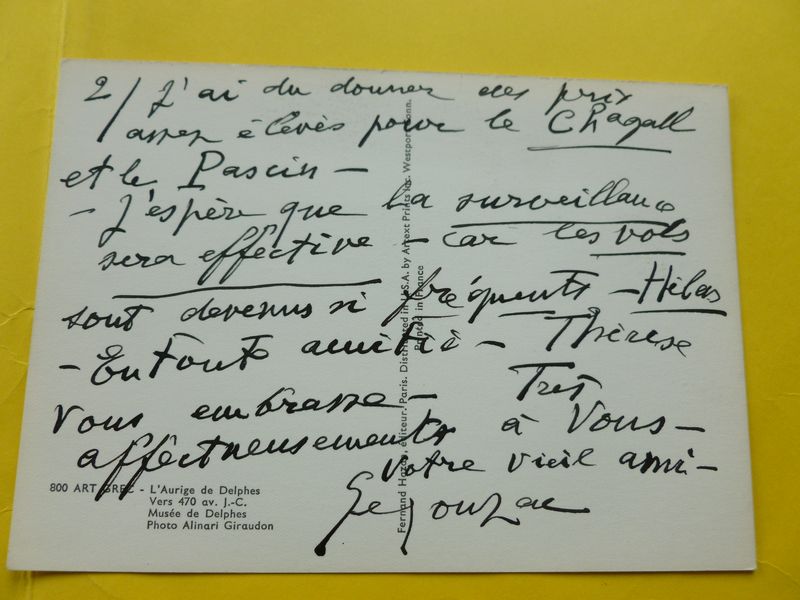 2/ J'ai du donner des prix
assez élevés pour le Chagall
et le Pascin –
– J'espère que la surveillance
sera effective – car les vols
sont devenus si fréquents – Hélas
– En toute amitié – Thérèse
vous embrasse – Très
affectueusements à Vous –
votre vieil ami –
Segonzac
800 ART GREC - L'Aurige de Delphes
Vers 470 av. J.-C.
Musée de Delphes
Photo Alinari Giraudon
Fernand Hazan, éditeur. Paris. Distributed in U.S.A. by Artext Prints Inc. Westport Conn.
Printed in France